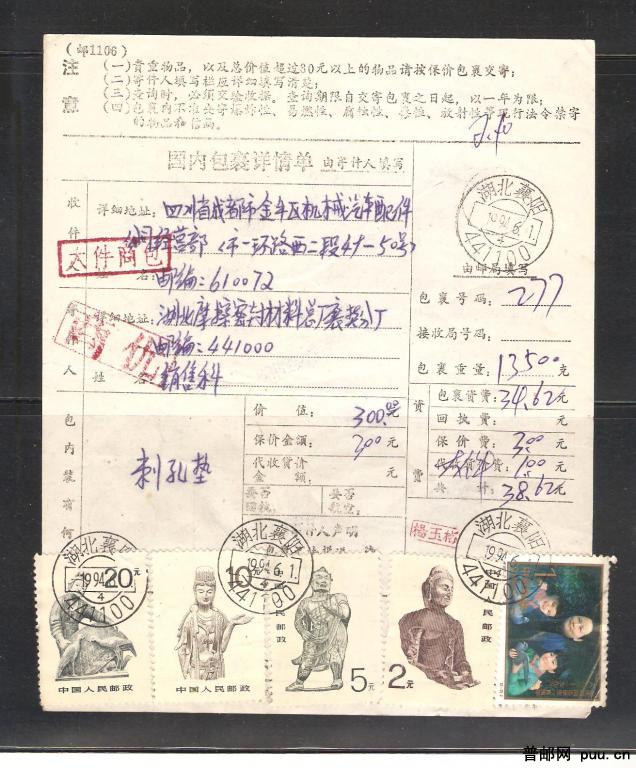 (邮1106)
注意
(一)贵重物品，以及总价值超过30元以上的物品请按保价包裹交寄；
(二)寄件人填写栏应详细填写清楚；
(三)查询时，必须交验收据。查询期限自交寄包裹之日起，以一年为限；
(四)包裹内不准夹寄爆炸性、易燃性、腐蚀性、毒性、放射性等现行法令禁寄
的物品和信函。
国内包裹详情单 由寄件人填写
湖北襄阳
1994.6.1.
4
441100
由邮局填写
收件
详细地址：四川省成都市金牛区机械汽车配件
经营部（市一环路西二段47-50号）
大件商包
名：邮编：610072
详细地址：湖北摩擦密封材料总厂襄樊分厂
邮编：441000
人 姓 名 销售科
包裹号码：277
接收局号码：
包裹重量：13500克
资费
包裹资费：34.62元
回执费： 元
保价费：3.00元
1.00元
共计：38.62元
包内装有何
刺孔垫
价 值：300.00元
保价金额：300元
代收货价金 额： 元
要否回执：
要否航空：
寄件人声明
杨玉梅
湖北襄阳
1994.6.1.
4
441100
湖北襄阳
1994.6.1.
4
441100
湖北襄阳
1994.6
441100
20元
中国人民邮政
10元
中国人民邮政
中国人民邮政
5元
中国人民邮政
2元
普邮网 puu.cn